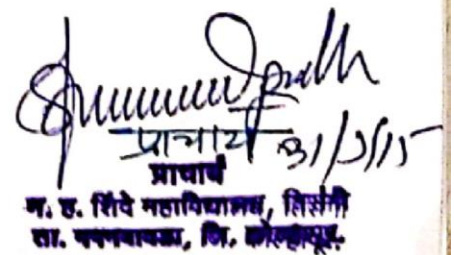 प्राचार्य 31/3/15
प्राचार्य
म. ह. शिंदे महाविद्यालय, तिसंगी
ता. गगनबावडा, जि. कोल्हापूर.